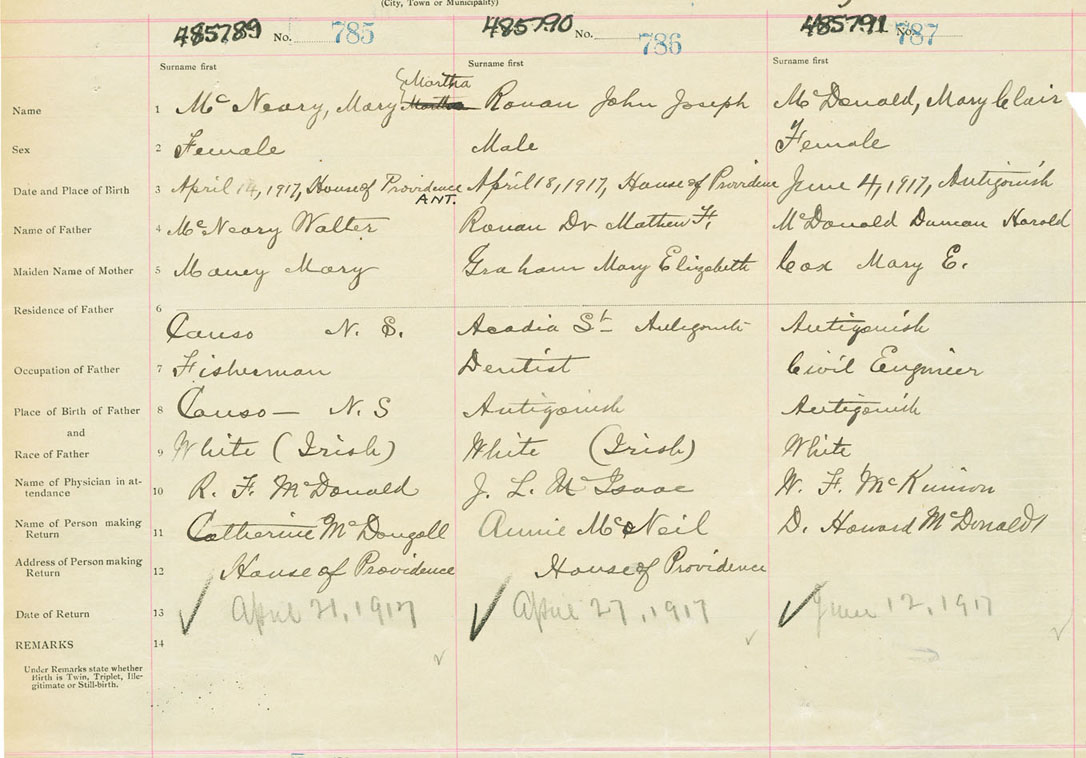 (City, Town or Municipality)
485789 No. 785 485790 No. 786 485791 No. 787
Surname first Surname first Surname first
Martha
Name 1 McNeary, Mary Martha Ronan John Joseph McDonald, Mary Clair
Sex 2 Female Male Female
Date and Place of Birth 3 April 14, 1917, House of Providence April 18, 1917, House of Providence June 4, 1917, Antigonish
ANT.
Name of Father 4 McNeary Walter Ronan Dr Mathew F. McDonald Duncan Harold
Maiden Name of Mother 5 Maney Mary Graham Mary Elizabeth Cox Mary E.
Residence of Father 6
Canso N. S. Acadia St Antigonish Antigonish
Occupation of Father 7 Fisherman Dentist Civil Engineer
Place of Birth of Father 8 Canso — N. S Antigonish Antigonish
and
Race of Father 9 White (Irish) White (Irish) White
Name of Physician in at-
tendance 10 R. F. McDonald J. L. McIsaac W. F. McKinnon
Name of Person making
Return 11 Catherine McDougall Annie McNeil D. Howard McDonald
Address of Person making
Return 12 House of Providence House of Providence
Date of Return 13 April 21, 1917 April 27, 1917 June 12, 1917
REMARKS 14
Under Remarks state whether
Birth is Twin, Triplet, Ille-
gitimate or Still-birth.